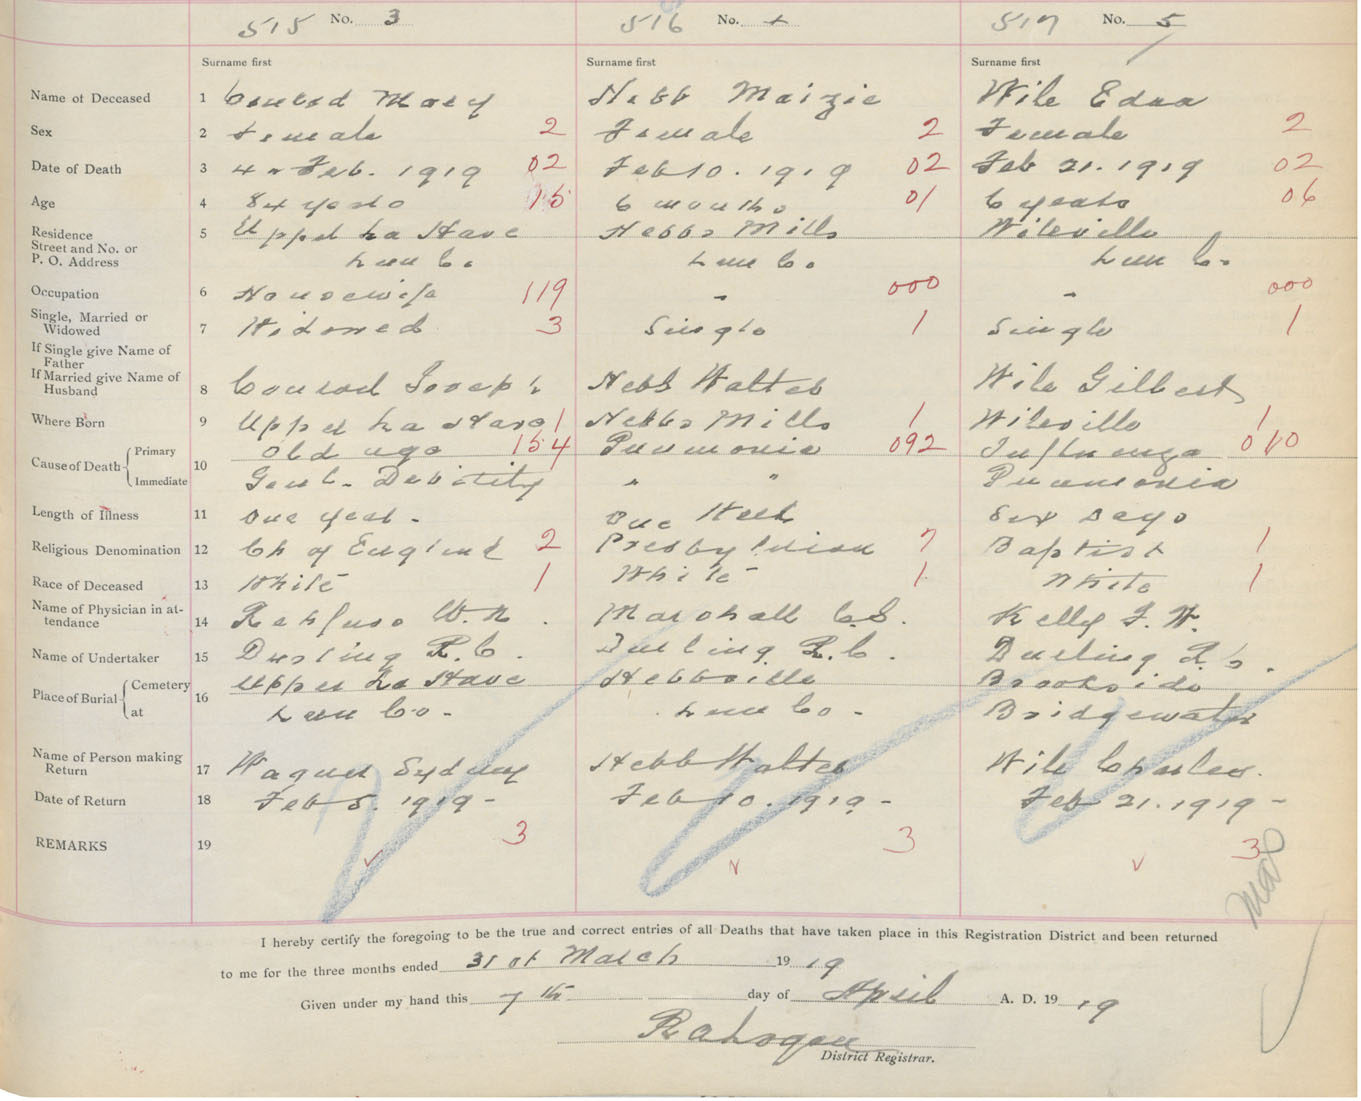 515 No. 3 516 No. 4 517 No. 5
Surname first Surname first Surname first
Name of Deceased 1 Conrad Mary Hebb Maizie Wile Edna
Sex 2 Female 2 Female 2 Female 2
Date of Death 3 4th Feb. 1919 02 Feb 10. 1919 02 Feb 21. 1919 02
Age 4 84 years 15 6 months 01 6 years 06
Residence
Street and No. or
P. O. Address 5 Upper La Have Hebbs Mills Wileville
Lun Co. Lun Co. Lun Co.
Occupation 6 Housewife 119 " 000 " 000
Single, Married or
Widowed 7 Widowed 3 Single 1 Single 1
If Single give Name of
Father
If Married give Name of
Husband 8 Conrad Joseph Hebb Walter Wile Gilbert
Where Born 9 Upper La Have 1 Hebbs Mills 1 Wileville 1
Cause of Death Primary 10 Old age 154 Pneumonia 092 Influenza 010
Immediate Genl. Debility " " Pneumonia
Length of Illness 11 One year. One Week Six days
Religious Denomination 12 Ch of England 2 Presbyterian 7 Baptist 1
Race of Deceased 13 White 1 White 1 White 1
Name of Physician in at-
tendance 14 Rehfuso W. N. Marshall C. S. Kelly F. W.
Name of Undertaker 15 Durling R. C. Durling R. C. Durling R. C.
Place of Burial Cemetery 16 Upper La Have Hebbville Brookside
at Lun Co. Lun Co. Bridgewater
Name of Person making
Return 17 Wagner Sydney Hebb Walter Wile Charles.
Date of Return 18 Feb 5. 1919 - Feb 10. 1919 - Feb 21. 1919 -
REMARKS 19 3 3 3
I hereby certify the foregoing to be the true and correct entries of all Deaths that have taken place in this Registration District and been returned
to me for the three months ended 31st March 19 19
Given under my hand this 7th day of April A. D. 19 19
District Registrar.